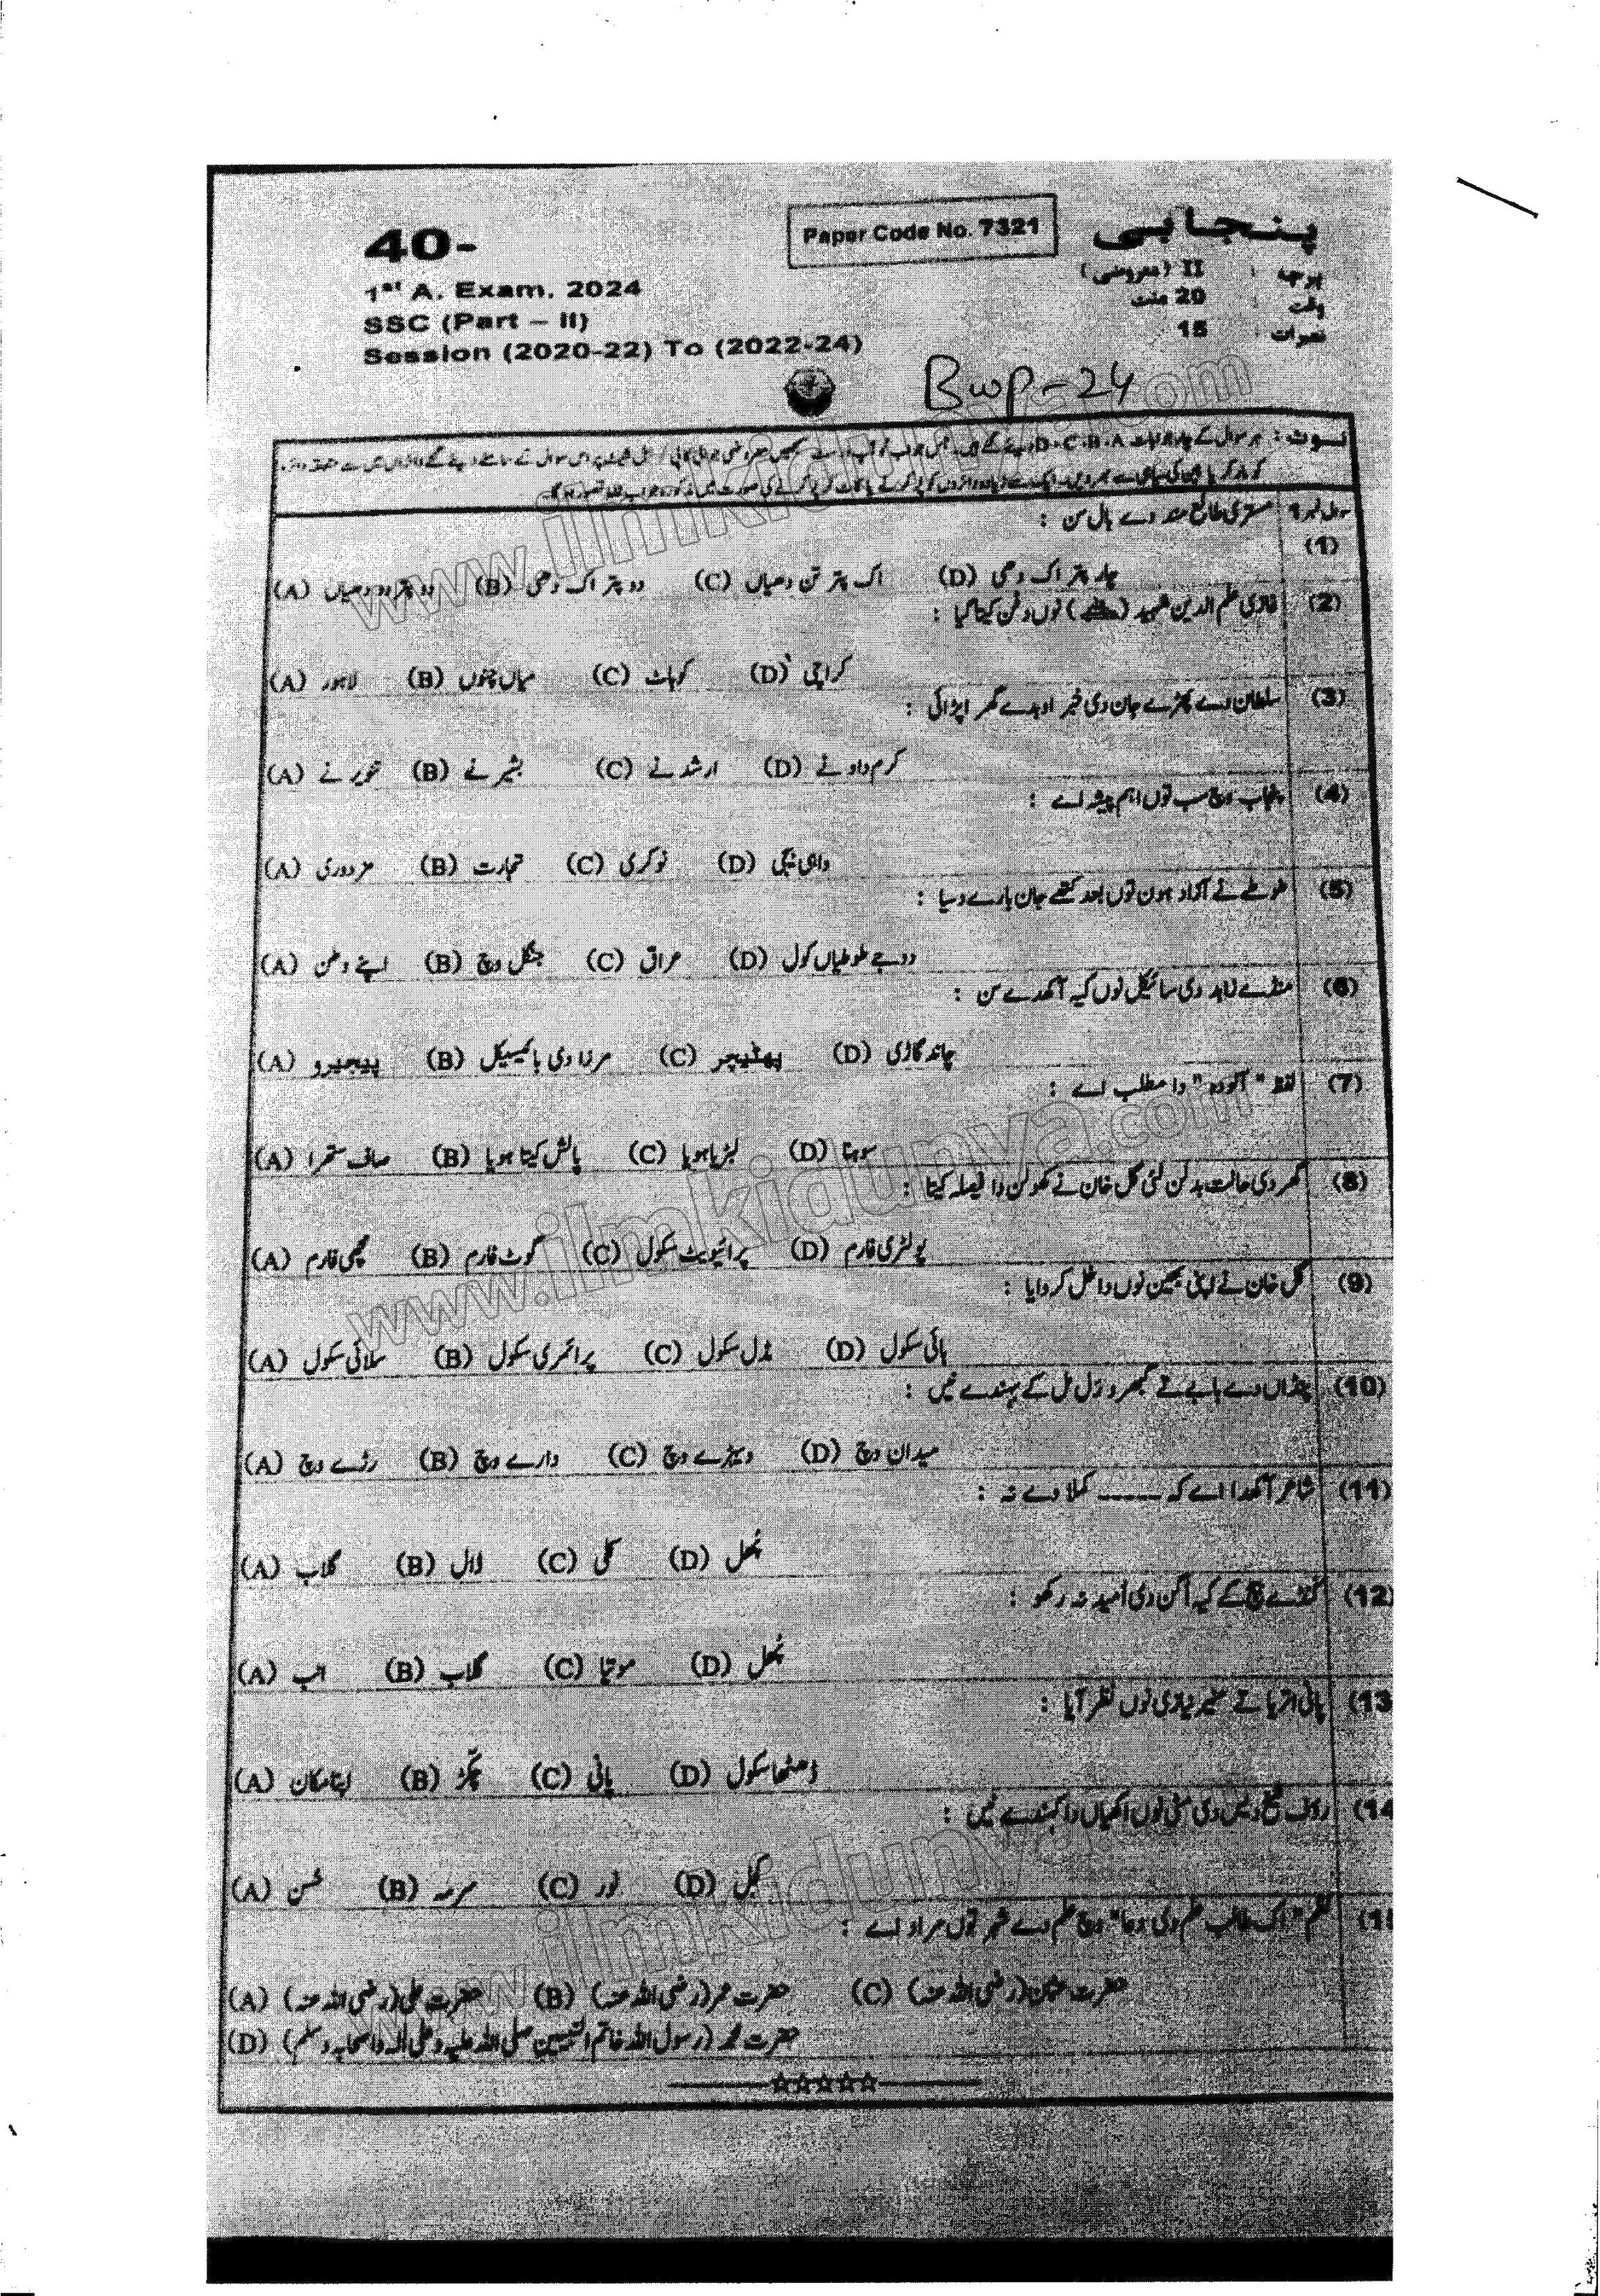 40-
Paper Code No. 7321
پنجابی
1st A. Exam. 2024
پرچہ : II (معروضی)
SSC (Part – II)
وقت : 20 منٹ
Session (2020-22) To (2022-24)
نمبرات : 15
Bwp-24
نوٹ : ہر سوال کے چار جوابات D - C - B - A دیئے گئے ہیں۔
سوال نمبر 1 مستری طالع مند دے بال سن :
(1)
(A) دو پتر دو دھیاں (B) دو پتر اک دھی (C) اک پتر تن دھیاں (D) چار پتر اک دھی
(2) غازی علم الدین شہید نوں دفن کیتا گیا :
(A) لاہور (B) میاں چنوں (C) کوہاٹ (D) کراچی
(3) سلطان دے پھڑے جان دی خبر اوہدے گھر اپڑائی :
(A) غورے نے (B) بشیر نے (C) ارشد نے (D) کرم داد نے
(4) پنجاب وچ سب توں اہم پیشہ اے :
(A) مزدوری (B) تجارت (C) نوکری (D) واہی بیجی
(5) طوطے نے آزاد ہون توں بعد کتھے جان بارے دسیا :
(A) اپنے وطن (B) جنگل وچ (C) عراق (D) دوجے طوطیاں کول
(6) منڈے زاہد دی سائیکل نوں کیہ آکھدے سن :
(A) پیجیرو (B) مرزا دی بائیسیکل (C) پھٹیچر (D) چاند گاڑی
(7) لفظ "آلودہ" دا مطلب اے :
(A) صاف ستھرا (B) پالش کیتا ہویا (C) لبڑیا ہویا (D) سوہنا
(8) گھر دی حالت بدلن لئی گل خان نے کھولن دا فیصلہ کیتا :
(A) مچھی فارم (B) گوٹ فارم (C) پرائیویٹ سکول (D) پولٹری فارم
(9) گل خان نے اپنی بھین نوں داخل کروایا :
(A) سلائی سکول (B) پرائمری سکول (C) مڈل سکول (D) ہائی سکول
(10) پنڈاں دے بابے تے گبھرو رَل مل کے بہندے نیں :
(A) رڑے وچ (B) دارے وچ (C) ویہڑے وچ (D) میدان وچ
(11) شاعر آکھدا اے کہ ــــــــ کملاوے نہ :
(A) گلاب (B) لال (C) کلی (D) پُھل
(12) کنڈے بیج کے کیہ اگن دی امید نہ رکھو :
(A) امب (B) گلاب (C) موتیا (D) پُھل
(13 پانی اتریا تے منیر نیازی نوں نظر آیا :
(A) اپنا مکان (B) چکڑ (C) پانی (D) ڈھٹھا سکول
(14 رؤف شیخ دیس دی مٹی نوں اکھیاں دا کہندے نیں :
(A) حُسن (B) سرمہ (C) نور (D) کجل
(1 نظم "اک طالب علم دی دعا" وچ علم دے شہر توں مراد اے :
(A) حضرت علی (رضی اللہ عنہ) (B) حضرت عمر (رضی اللہ عنہ) (C) حضرت عثمان (رضی اللہ عنہ)
(D) حضرت محمد (رسول اللہ خاتم النبیین صلی اللہ علیہ وعلی آلہ واصحابہ وسلم)
www.ilmkidunya.com
www.ilmkidunya.com
www.ilmkidunya